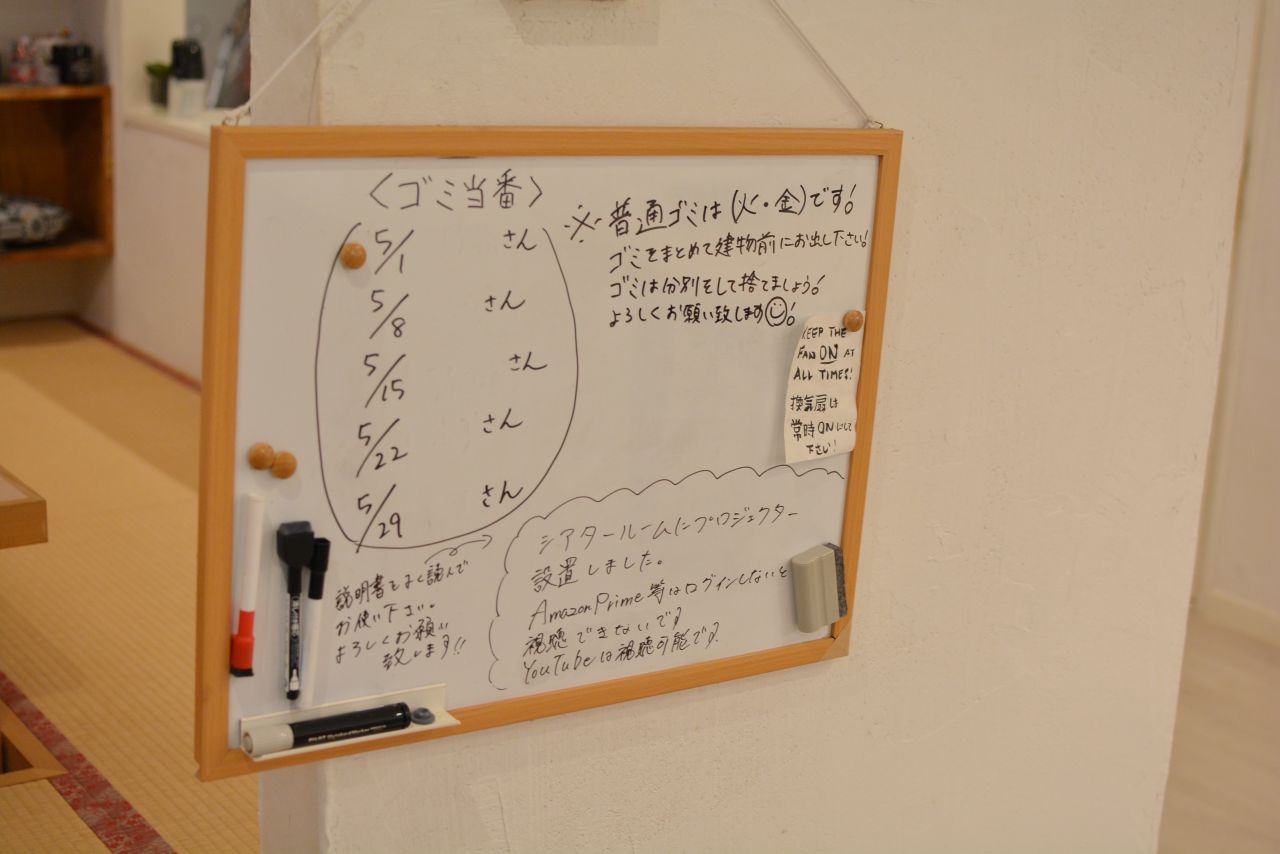 〈ゴミ当番〉
5/1 さん
5/8 さん
5/15 さん
5/22 さん
5/29 さん
※普通ゴミは(火・金)です!
ゴミをまとめて建物前にお出し下さい!
ゴミは分別をして捨てましょう!
よろしくお願い致します!
KEEP THE
FAN ON AT
ALL TIMES!
換気扇は
常時ONにして
下さい!
シアタールームにプロジェクター
設置しました。
Amazon Prime等はログインしないと
視聴できないです
YouTubeは視聴可能です
説明書をよく読んで
お使い下さい。
よろしくお願い
致します!!